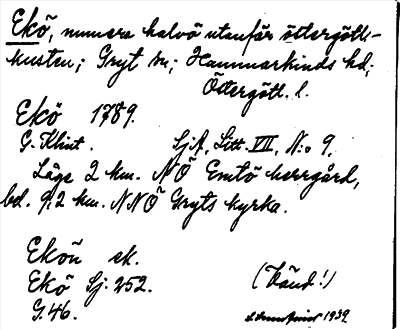 Ekö, numera halvö utanför östergötl.-
kusten; Gryt sn; Hammarkinds hd;
Östergötl. l.
Ekö 1789.
G. Klint. SjA, Litt. VII, N:o 9.
Läge 2 km. NÖ Emtö herrgård,
bd. 9,2 km. NNÖ Gryts kyrka.
Ekön ek.
Ekö Sj. 252.
G. 46. (Vänd!)
1939